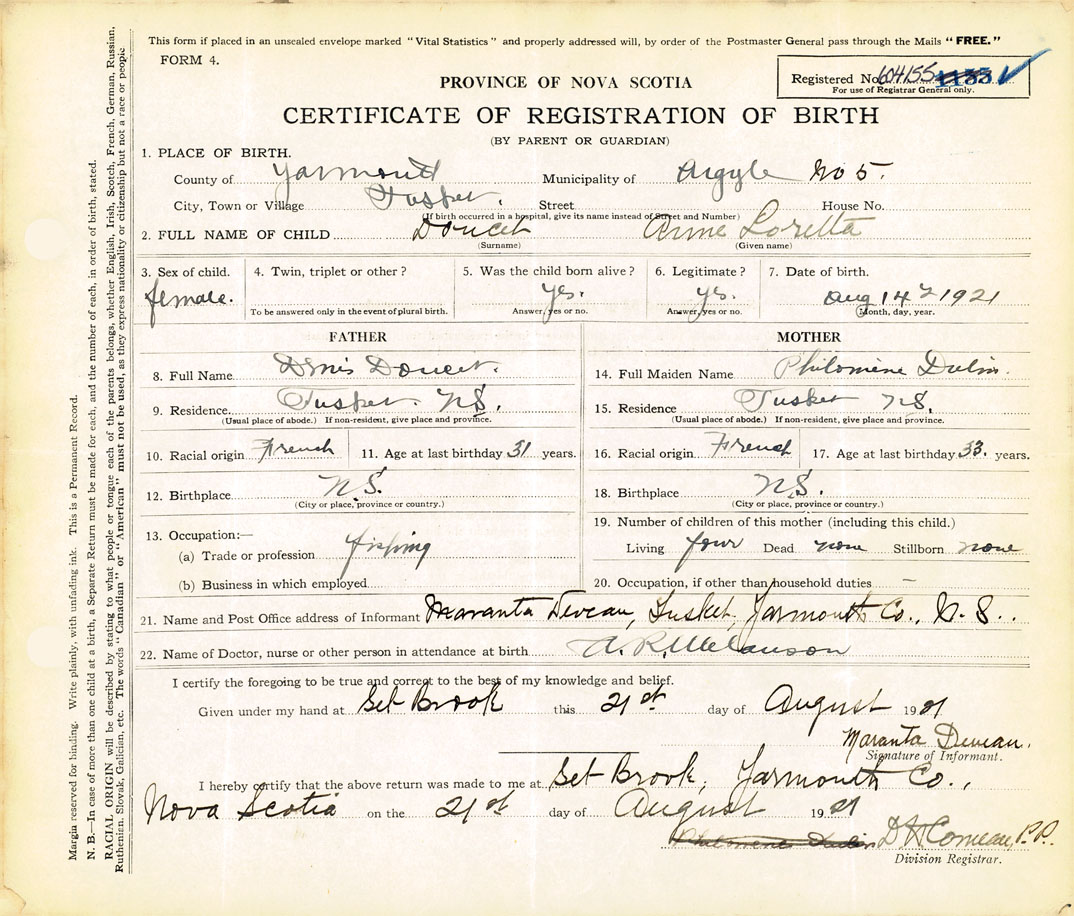 This form if placed in an unsealed envelope marked "Vital Statistics" and properly addressed will, by order of the Postmaster General pass through the Mails "FREE."
FORM 4.
Registered No. 604155
For use of Registrar General only.
PROVINCE OF NOVA SCOTIA
CERTIFICATE OF REGISTRATION OF BIRTH
(BY PARENT OR GUARDIAN)
1. PLACE OF BIRTH.
County of Yarmouth Municipality of Argyle No 5.
City, Town or Village Tusket. Street House No.
(If birth occurred in a hospital, give its name instead of Street and Number)
2. FULL NAME OF CHILD Doucet Anne Loretta
(Surname) (Given name)
3. Sex of child. 4. Twin, triplet or other? 5. Was the child born alive? 6. Legitimate? 7. Date of birth.
female. yes. yes. Aug 14 1921
To be answered only in the event of plural birth. Answer, yes or no. Answer, yes or no. Month, day, year.
FATHER
8. Full Name Denis Doucet.
9. Residence Tusket. N.S.
(Usual place of abode.) If non-resident, give place and province.
10. Racial origin French 11. Age at last birthday 31 years.
12. Birthplace N.S.
(City or place, province or country.)
13. Occupation:—
(a) Trade or profession fishing
(b) Business in which employed
MOTHER
14. Full Maiden Name Philomène Dulin.
15. Residence Tusket N.S.
(Usual place of abode.) If non-resident, give place and province.
16. Racial origin French 17. Age at last birthday 33. years.
18. Birthplace N.S.
(City or place, province or country.)
19. Number of children of this mother (including this child.)
Living four Dead none Stillborn none
20. Occupation, if other than household duties –
21. Name and Post Office address of Informant Maranta Deveau, Tusket, Yarmouth Co., N. S..
22. Name of Doctor, nurse or other person in attendance at birth A. R. Melanson
I certify the foregoing to be true and correct to the best of my knowledge and belief.
Given under my hand at Sel Brook this 21st day of August 1921
Maranta Deveau.
Signature of Informant.
I hereby certify that the above return was made to me at Sel Brook, Yarmouth Co.,
Nova Scotia on the 21st day of August 1921
Philomene Dulin D. W. Comeau, P.P.
Division Registrar.
Margin reserved for binding. Write plainly, with unfading ink. This is a Permanent Record.
N. B.—In case of more than one child at a birth, a Separate Return must be made for each, and the number of each, in order of birth, stated.
RACIAL ORIGIN will be described by stating to what people or tongue each of the parents belongs, whether English, Irish, Scotch, French, German, Russian,
Ruthenian, Slovak, Galician, etc. The words "Canadian" or "American" must not be used, as they express nationality or citizenship but not a race or people